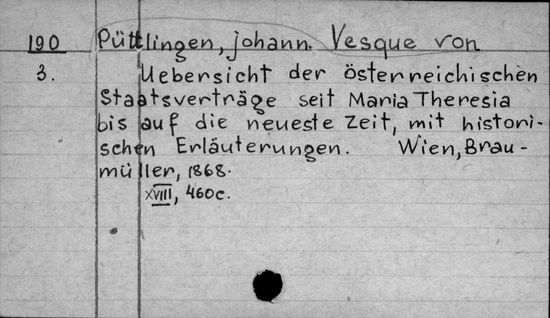 190 Püttlingen, johann. Vesque von
3. Uebersicht der österreichischen
Staatsverträge seit Maria Theresia
bis auf die neueste Zeit, mit histori-
schen Erläuterungen. Wien, Brau-
müller, 1868.
XVIII, 460c.